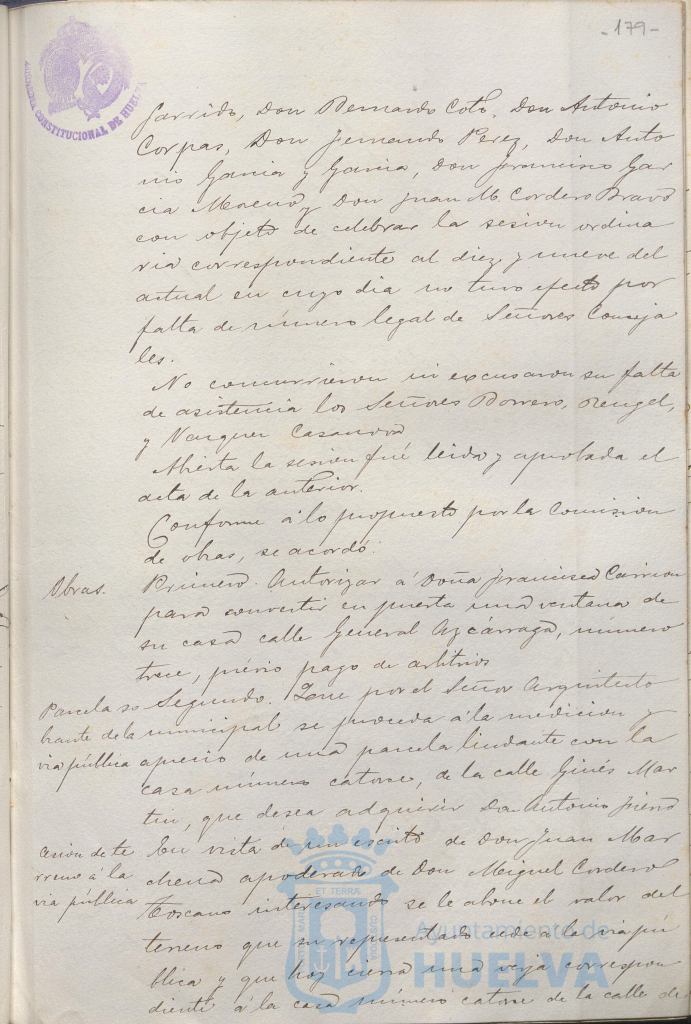 -179-
ALCALDIA CONSTITUCIONAL DE HUELVA
Garrido, Don Bernardo Coto, Don Antonio
Corpas, Don Fernando Perez, Don Anto
nio Garcia y Garcia, Don Francisco Gar
cia Moreno y Don Juan M. Cordero Bravo
con objeto de celebrar la sesion ordina
ria correspondiente al diez y nueve del
actual en cuyo dia no tuvo efecto por
falta de número legal de Señores Conceja
les.
No concurrieron ni excusaron su falta
de asistencia los Señores Borrero, Rengel,
y Vazquez Casanova
Abierta la sesion fué leida y aprobada el
acta de la anterior.
Conforme á lo propuesto por la Comision
de obras, se acordó:
Obras.
Primero. Autorizar á Doña Francisca Carrion
para convertir en puerta una ventana de
su casa calle General Azcárraga, número
trece, prévio pago de arbitrios
Parcela so
brante de la
via pública
Segundo. Que por el Señor Arquitecto
municipal se proceda á la medicion y
aprecio de una parcela lindante con la
casa número catorce, de la calle Ginés Mar
tin, que desea adquirir Dn Antonio
Cesion de te
rreno á la
via pública
En vista de un escrito de Don Juan Mar
chena apoderado de Don Miguel Cordero
Toscano interesando se le abone el valor del
terreno que su representado cede á la via pú
blica y que hoy cierra una verja correspon
diente á la casa número catorce de la calle de
ET TERRÆ
Ayuntamiento de
HUELVA